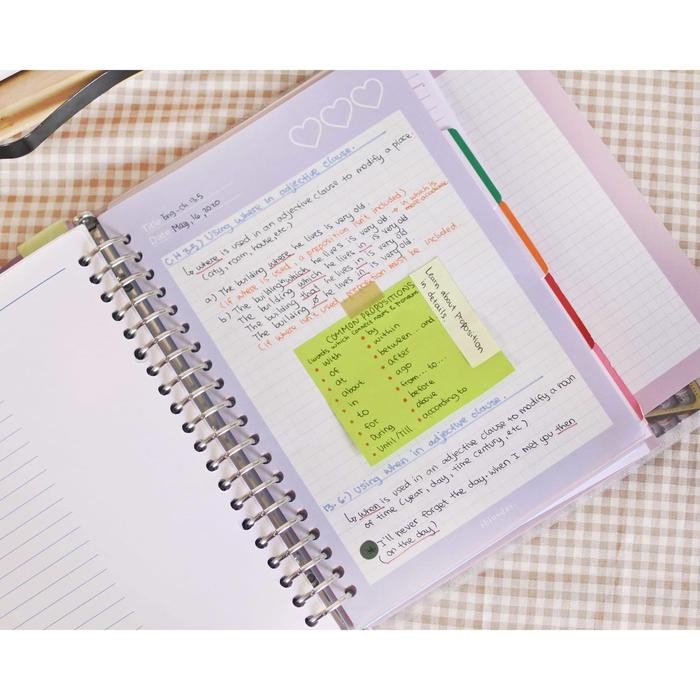 Title Eng. ch 13.5
Date May, 16, 2020
CH 13.5) Using where in adjective clause.
↳ where is used in an adjective clause to modify a place.
(city, room, house, etc)
a) The building where he lives is very old.
(if where is used, a preposition isn't included)
b) The building which he lives in is very old
→ which is more accurate
The building which he lives in is very old
The building that he lives in is very old
The building ∅ he lives in is very old.
(if where isn't used preposition must be included
COMMON PROPOSITIONS
(words which connect nouns &
• with
• of
• at
• about
• in
• to
• for
• During
• Until/Till
• by
• within
• between...and
• after
• ago
• from...to...
• before
• above
• according to
Learn about proposition
in details.
13.6) Using when in adjective clause.
↳ when is used in an adjective clause to modify a noun
of time (year, day, time century, etc)
* I'll never forget the day, when I met you then
(on the day)